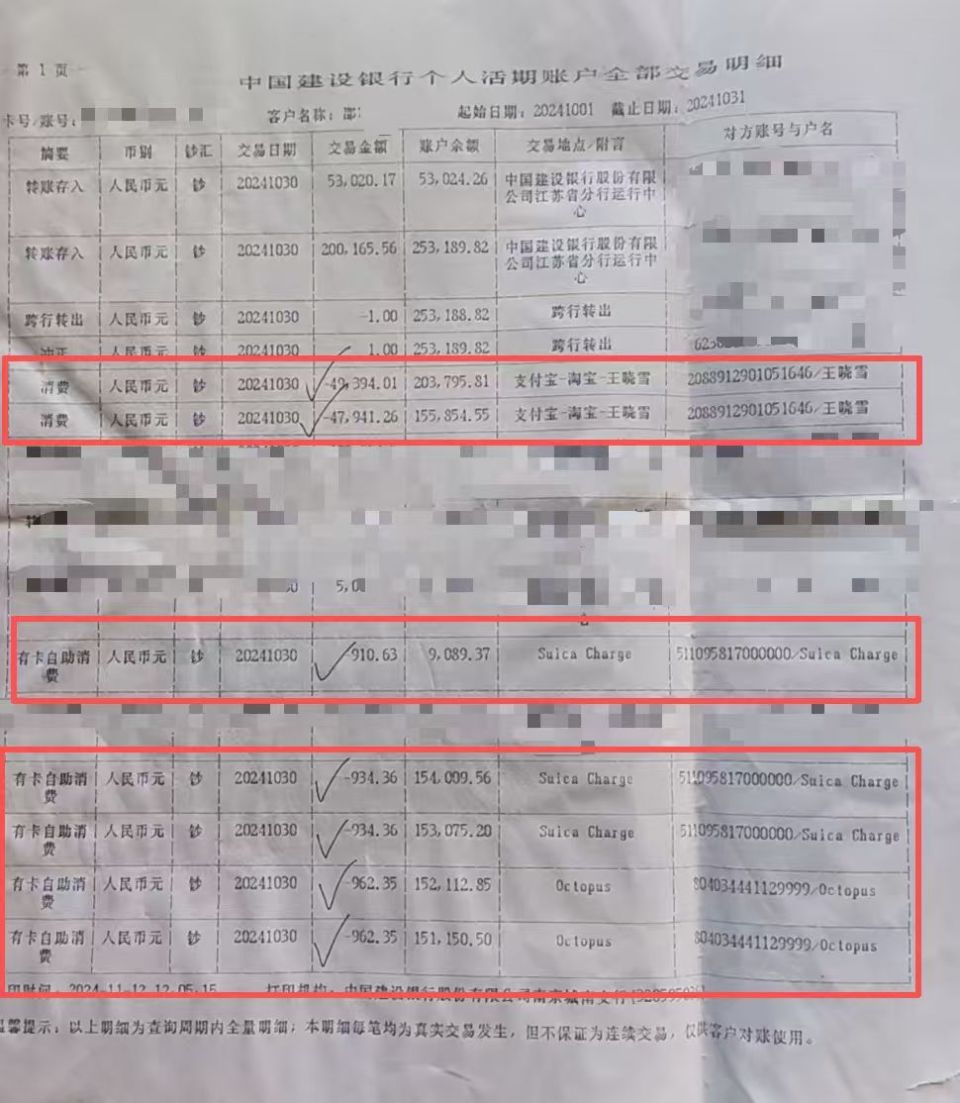 第 1 页
中国建设银行个人活期账户全部交易明细
卡号/账号: 客户名称: 邵 起始日期: 20241001 截止日期: 20241031
摘要 币别 钞汇 交易日期 交易金额 账户余额 交易地点/附言 对方账号与户名
转账存入 人民币元 钞 20241030 53,020.17 53,024.26 中国建设银行股份有限
公司江苏省分行运行中
心
转账存入 人民币元 钞 20241030 200,165.56 253,189.82 中国建设银行股份有限
公司江苏省分行运行中
心
跨行转出 人民币元 钞 20241030 -1.00 253,188.82 跨行转出
冲正 人民币元 钞 20241030 1.00 253,189.82 跨行转出
消费 人民币元 钞 20241030 -49,394.01 203,795.81 支付宝-淘宝-王晓雪 2088912901051646/王晓雪
消费 人民币元 钞 20241030 -47,941.26 155,854.55 支付宝-淘宝-王晓雪 2088912901051646/王晓雪
心
有卡自助消 人民币元 钞 20241030 -910.63 9,089.37 Suica Charge 511095817000000/Suica Charge
费
有卡自助消 人民币元 钞 20241030 -934.36 154,009.56 Suica Charge 511095817000000/Suica Charge
费
有卡自助消 人民币元 钞 20241030 -934.36 153,075.20 Suica Charge 511095817000000/Suica Charge
费
有卡自助消 人民币元 钞 20241030 -962.35 152,112.85 Octopus 804034441129999/Octopus
费
有卡自助消 人民币元 钞 20241030 -962.35 151,150.50 Octopus 804034441129999/Octopus
费
印时间: 2024-11-12 12:05:15 打印机构: 中国建设银行股份有限公司南京城南支行
温馨提示: 以上明细为查询周期内全量明细; 本明细每笔均为真实交易发生, 但不保证为连续交易, 仅供客户对账使用。